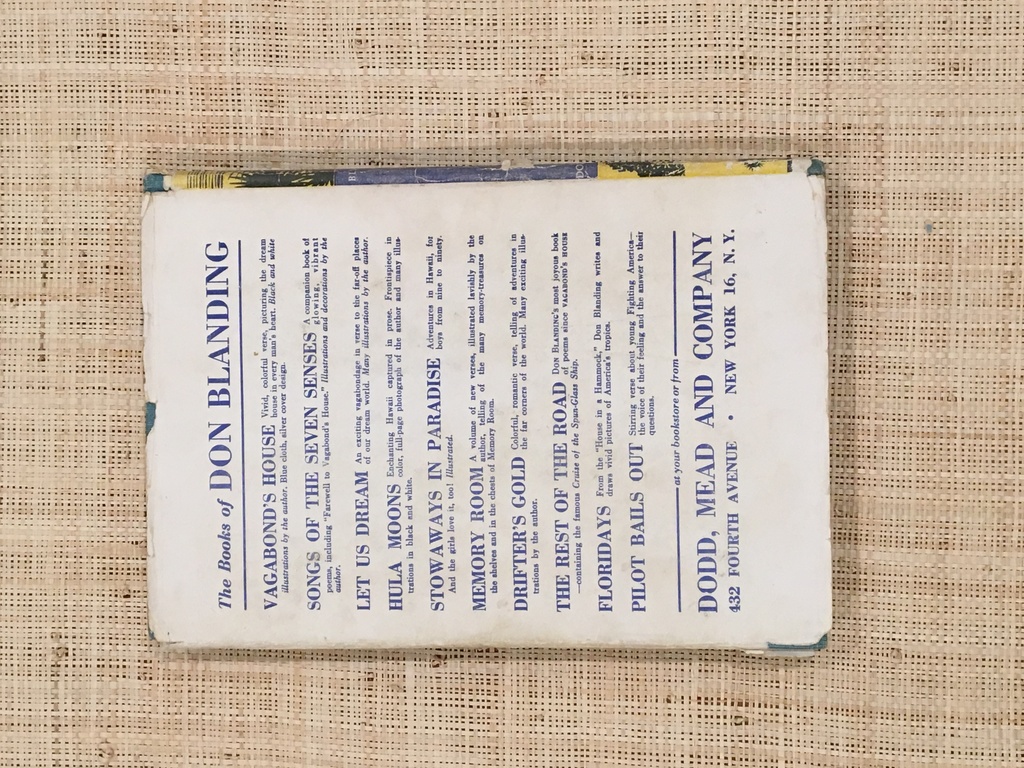 The Books of DON BLANDING
VAGABOND'S HOUSE Vivid, colorful verse, picturing the dream
house in every man's heart. Black and white
illustrations by the author. Blue cloth, silver cover design.
SONGS OF THE SEVEN SENSES A companion book of
glowing, vibrant
poems, including "Farewell to Vagabond's House." Illustrations and decorations by the
author.
LET US DREAM An exciting vagabondage in verse to the far-off places
of our dream world. Many illustrations by the author.
HULA MOONS Enchanting Hawaii captured in prose. Frontispiece in
color, full-page photograph of the author and many illus-
trations in black and white.
STOWAWAYS IN PARADISE Adventures in Hawaii, for
boys from nine to ninety.
And the girls love it, too! Illustrated.
MEMORY ROOM A volume of new verses, illustrated lavishly by the
author, telling of the many memory-treasures on
the shelves and in the chests of Memory Room.
DRIFTER'S GOLD Colorful, romantic verse, telling of adventures in
the far corners of the world. Many exciting illus-
trations by the author.
THE REST OF THE ROAD DON BLANDING'S most joyous book
of poems since VAGABOND'S HOUSE
—containing the famous Cruise of the Spun-Glass Ship.
FLORIDAYS From the "House in a Hammock," Don Blanding writes and
draws vivid pictures of America's tropics.
PILOT BAILS OUT Stirring verse about young Fighting America—
the voice of their feeling and the answer to their
questions.
at your bookstore or from
DODD, MEAD AND COMPANY
432 FOURTH AVENUE • NEW YORK 16, N. Y.